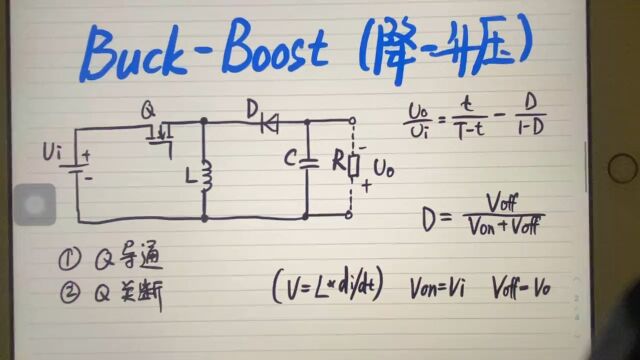 Buck-Boost (降-升压)
Q
D
Ui
+
-
L
C
R
-
Uo
+
Uo/Ui = t/T-t - D/1-D
D = Voff/Von+Voff
① Q 导通
② Q 关断
(V=L*di/dt) Von=Vi Voff-Vo